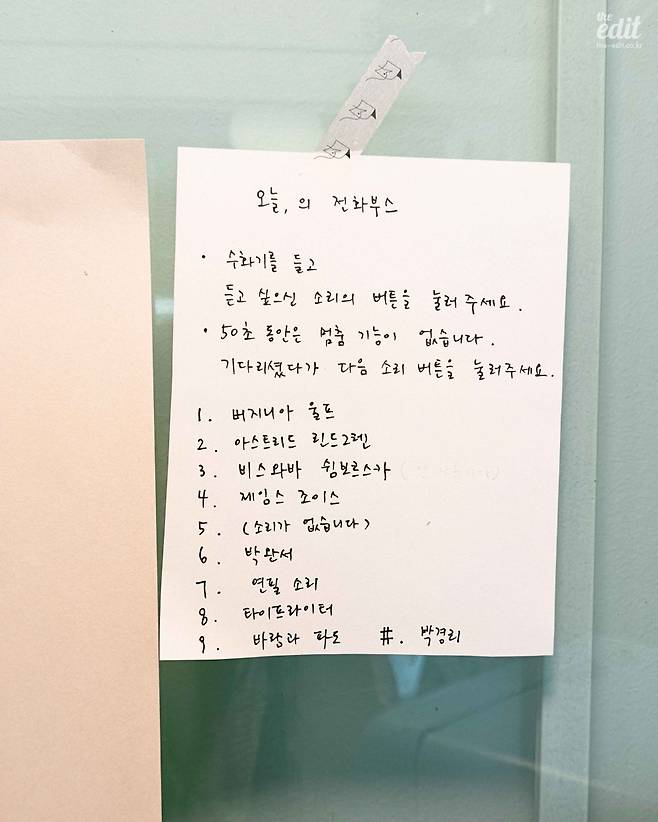 the
edit
the-edit.co.kr
오늘, 의 전화부스
· 수화기를 들고
듣고 싶으신 소리의 버튼을 눌러 주세요.
· 50초 동안은 멈춤 기능이 없습니다.
기다리셨다가 다음 소리 버튼을 눌러주세요.
1. 버지니아 울프
2. 아스트리드 린드그렌
3. 비스와바 쉼보르스카
4. 제임스 조이스
5. (소리가 없습니다)
6. 박완서
7. 연필 소리
8. 타이프라이터
9. 바람과 파도 #. 박경리